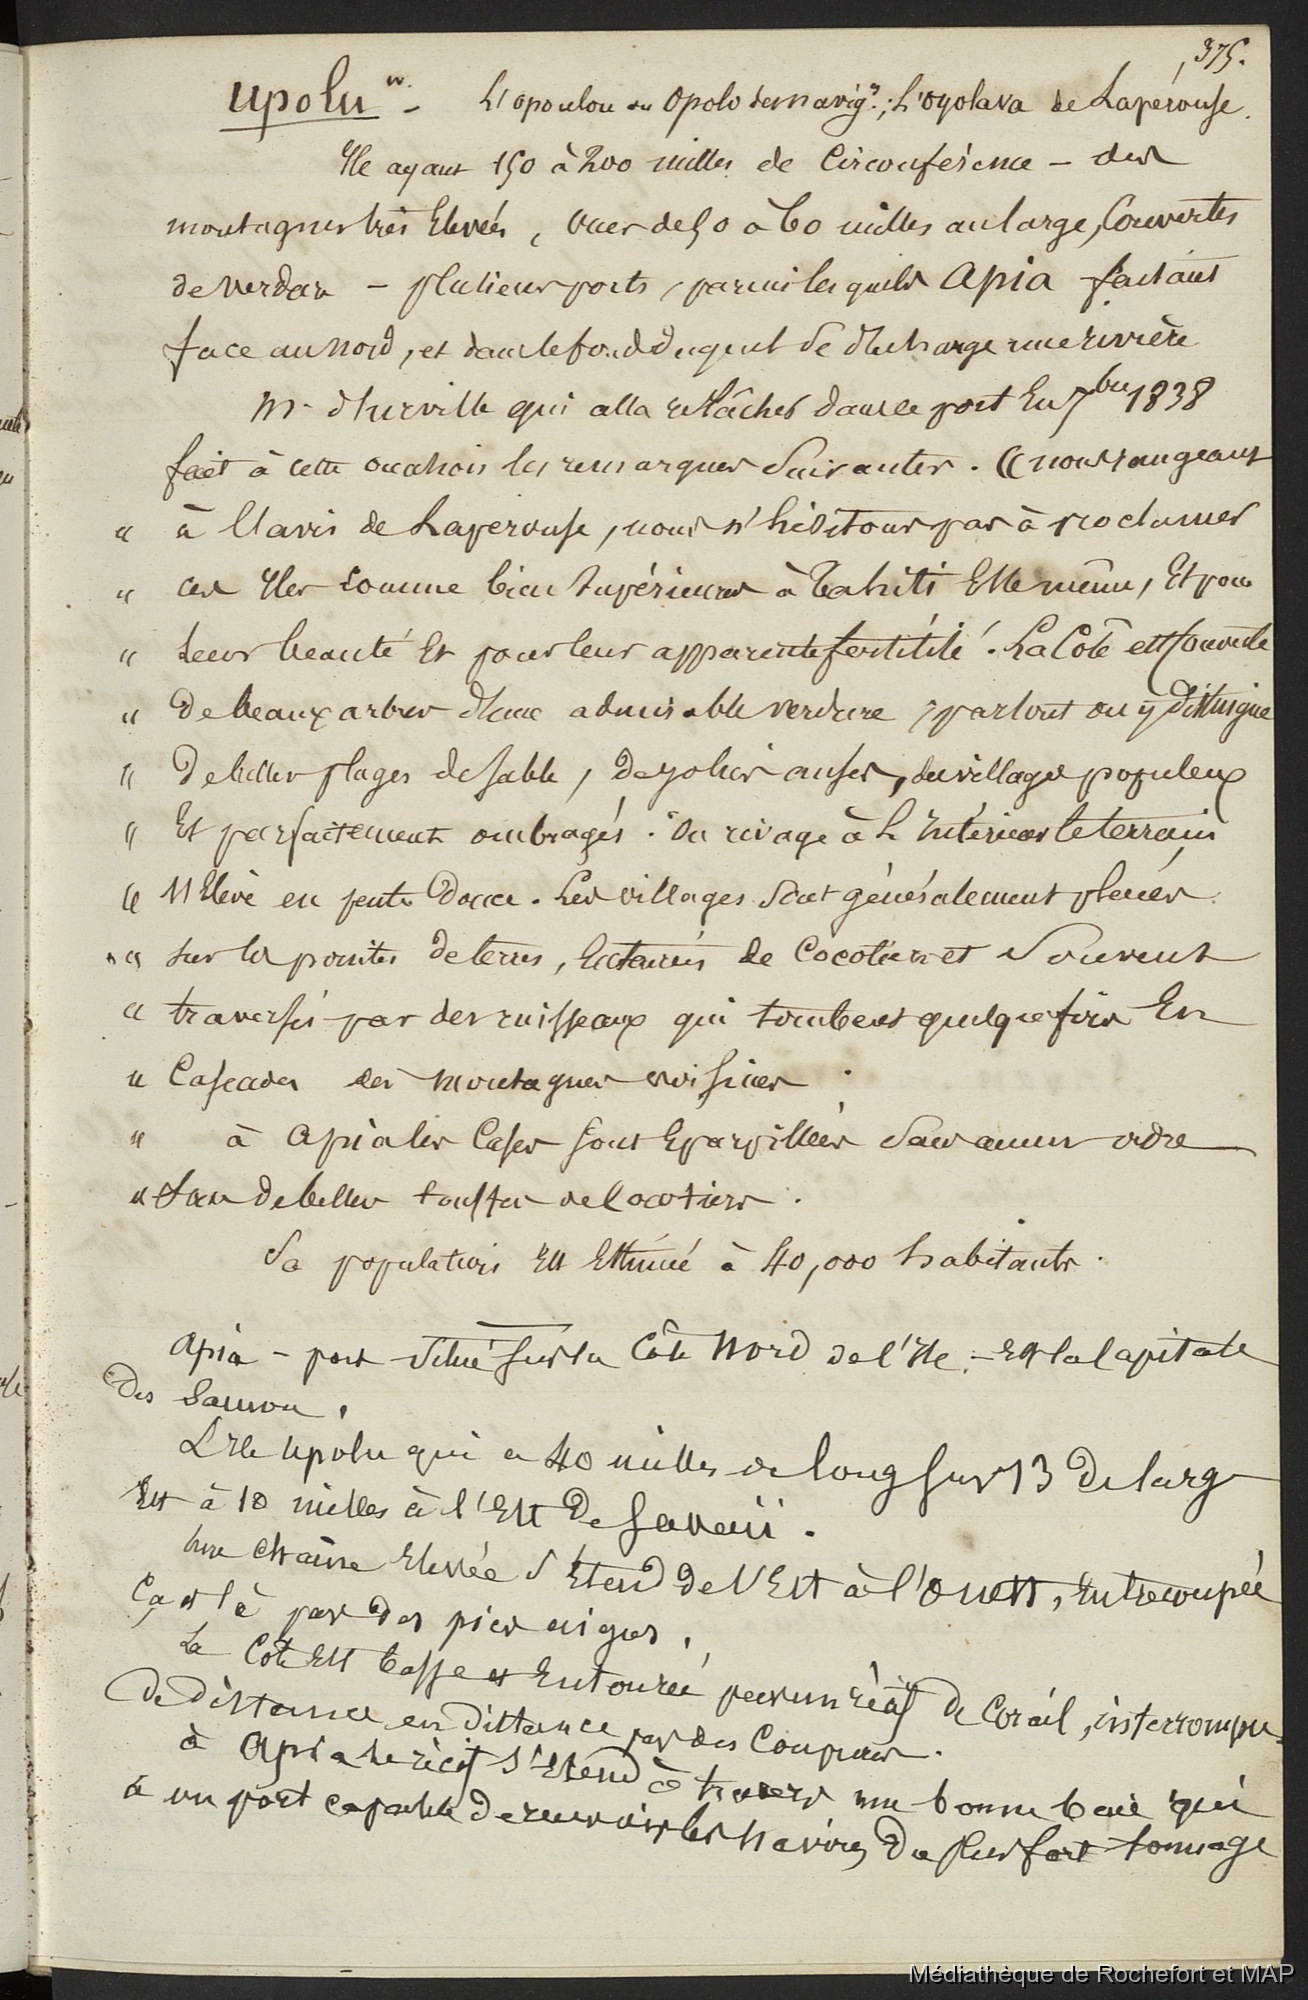 375.
Upolu - L'opoulou ou Opolo des navigrs; L'oyolava de Lapérouse.
Ile ayant 150 à 200 milles de circonférence - des
montagnes très Elevées, vues de 50 à 60 milles au large, Couvertes
de verdure - plusieurs ports, parmi lesquels Apia faisant
face au nord, et dans le fond duquel se décharge une rivière
Mr d'Urville qui alla relâcher dans ce port En 7bre 1838
fait à cette occasion les remarques Suivantes. « nous rangeant
" à l'avis de Laperouse, nous n'hésitons pas à proclamer
" ces Iles comme bien supérieures à Tahiti Elle même, Et pour
" leur beauté Et pour leur apparente fertilité. La Côte est couverte
" De beaux arbres d'une admirable verdure, partout on y distingue
" De belles plages de sable, De jolies anses, des villages populeux
" Et parfaitement ombragés. Du rivage à l'Intérieur le terrain
" s'Elève en pente Douce. Les villages sont généralement placés
" sur les pointes de terres, Entourés de Cocotiers et Souvent
" traversés par des ruisseaux qui tombent quelquefois En
" Cascades des montagnes voisines.
" à Apia les Cases sont Eparpillées Sans aucun ordre
" Sous de belles touffes de Cocotiers.
Sa population Est Estimée à 40,000 habitants.
Apia - port Situé sur la Côte Nord de l'Ile. - Est la Capitale
des Samoa.
L'Ile Upolu qui a 40 milles de long sur 13 De large
Est à 10 milles à l'Est De Savaii.
Une chaîne Elevée s'Etend De l'Est à l'Ouest, Entrecoupée
Ça et là par Des pics aigus.
La Cote Est basse et Entourée par un récif de Corail, interrompu
De distance en distance par des Coupures.
à Apia le récif s'Etend à travers une bonne baie qui
a un port capable De recevoir les navires Du plus fort tonnage
Médiathèque de Rochefort et MAP